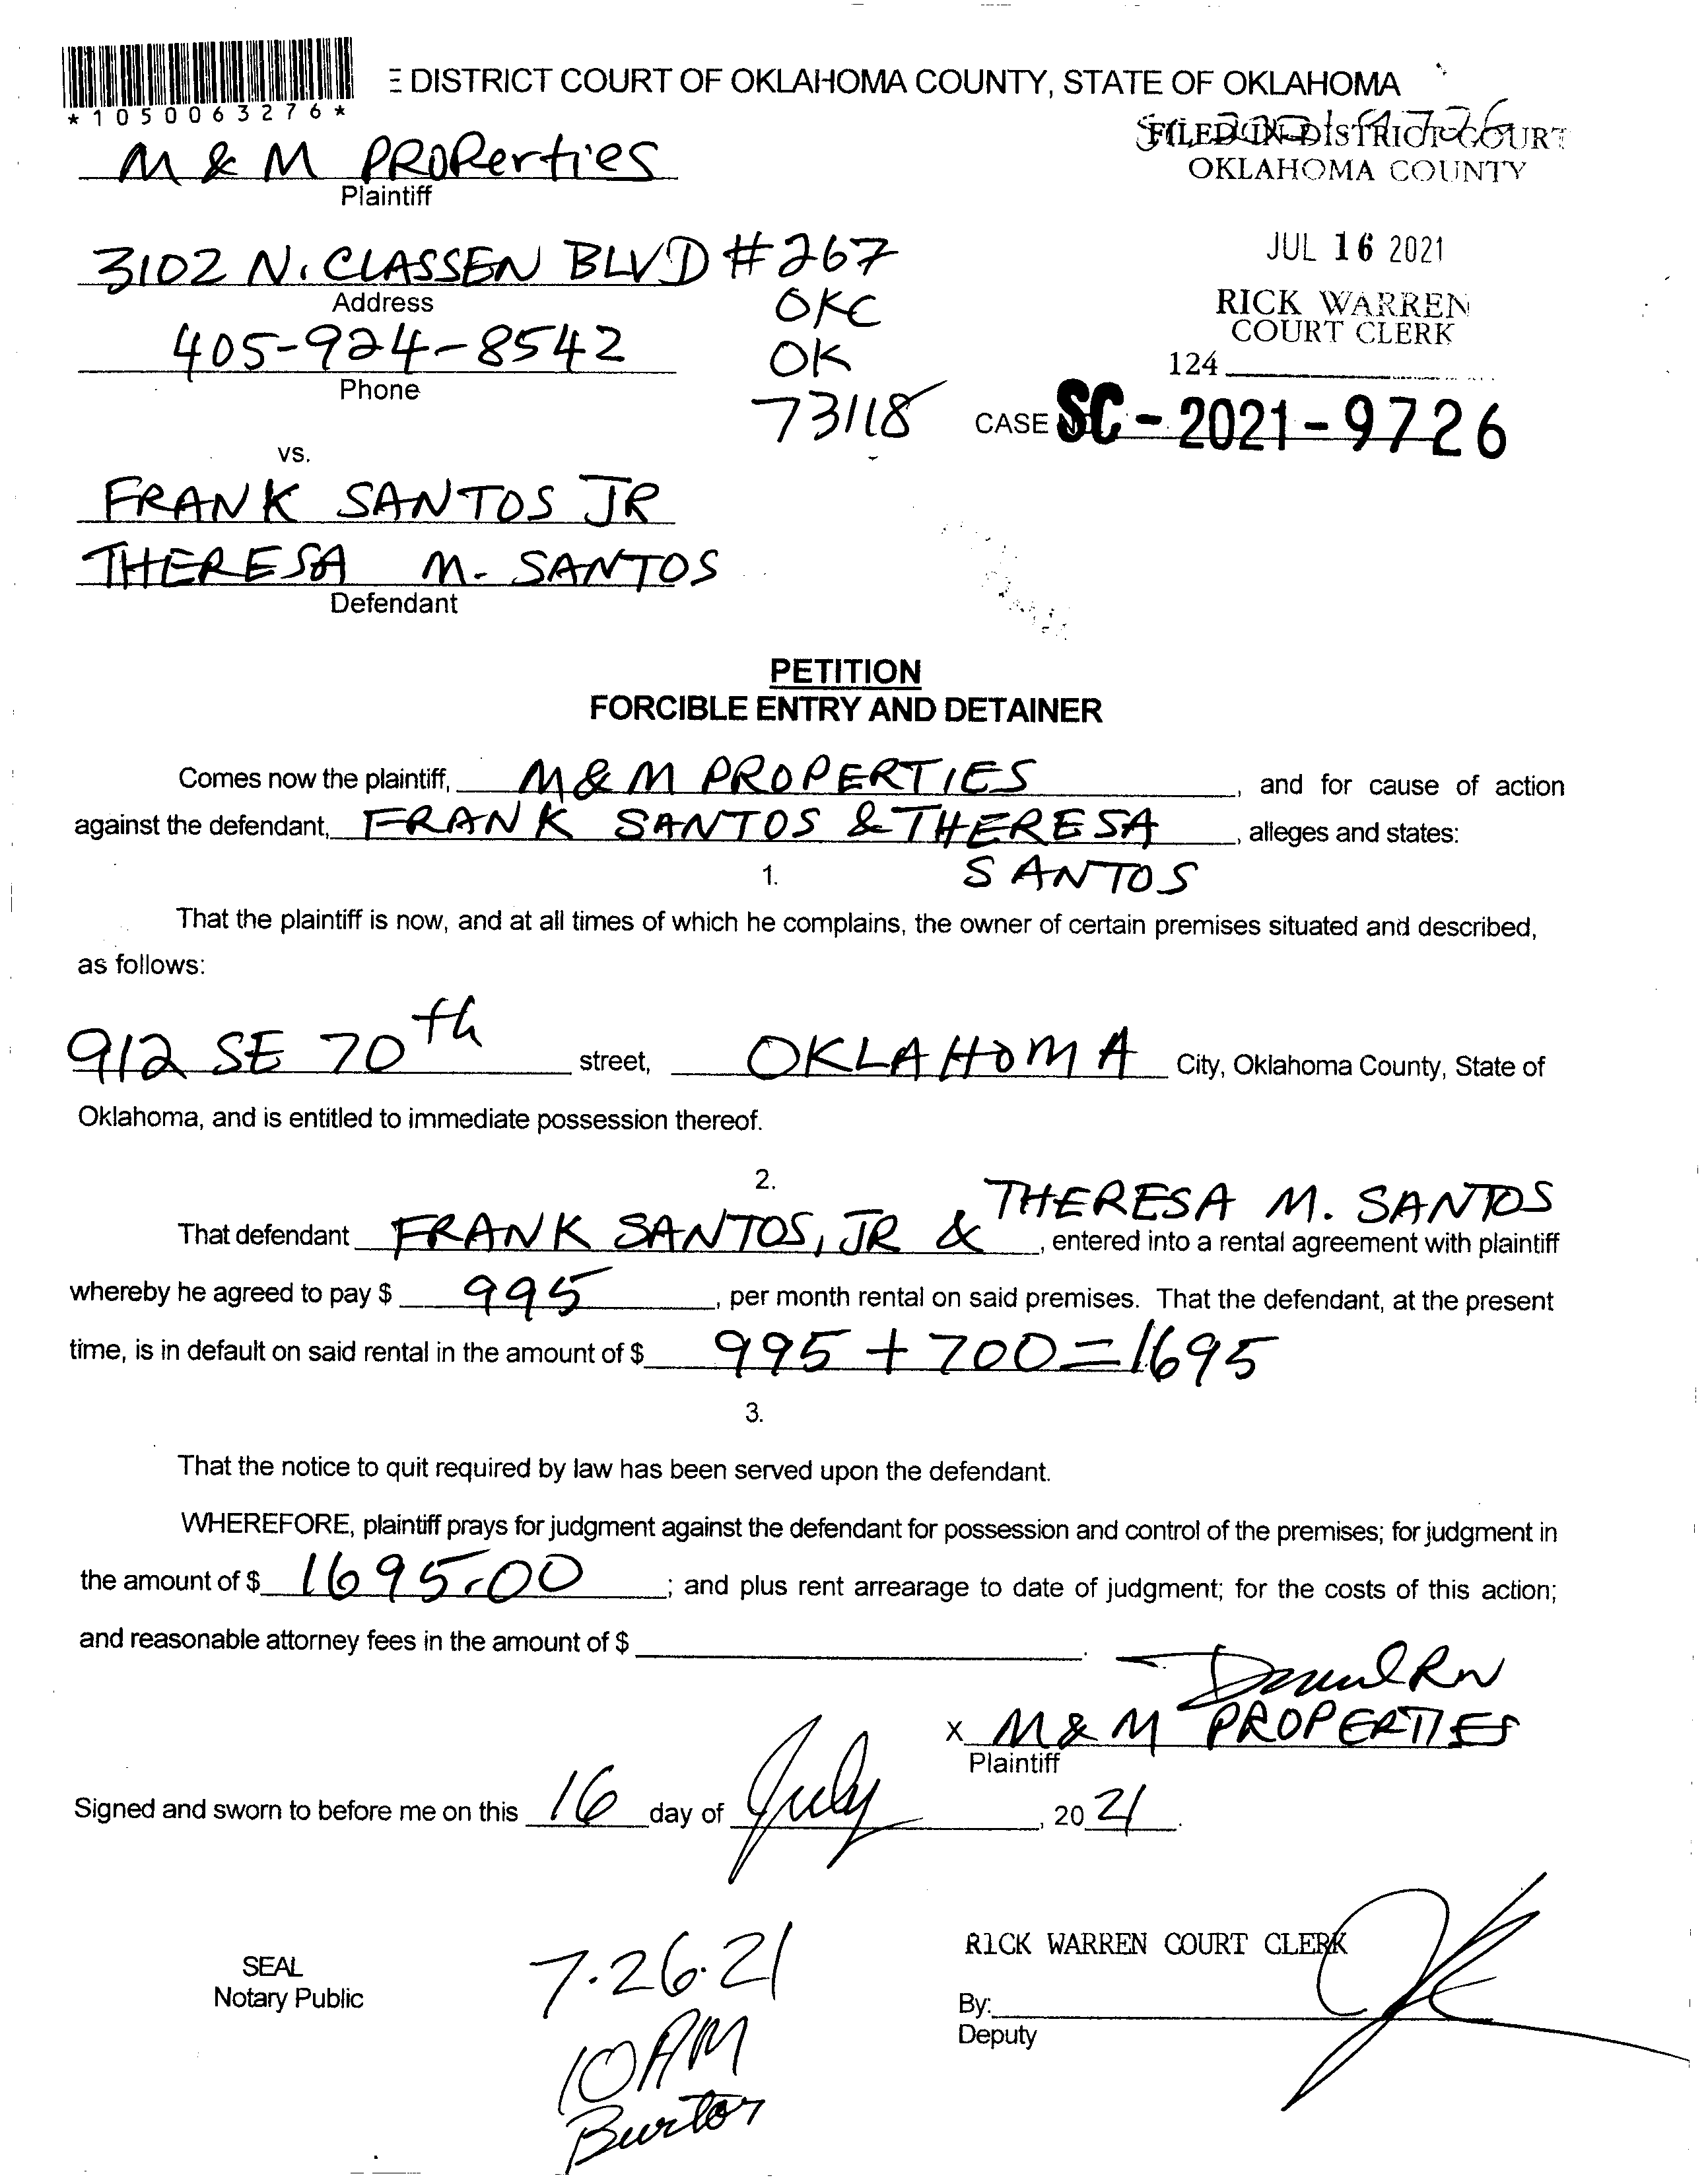 *1050063276*
E DISTRICT COURT OF OKLAHOMA COUNTY, STATE OF OKLAHOMA
FILED IN DISTRICT COURT
OKLAHOMA COUNTY
M & M PROPerties
Plaintiff
JUL 16 2021
3102 N. CLASSEN BLVD #267
Address
OKC
RICK WARREN
COURT CLERK
405-924-8542
OK
Phone
124
73118
CASE SC-2021-9726
vs.
FRANK SANTOS JR
THERESA M. SANTOS
Defendant
PETITION
FORCIBLE ENTRY AND DETAINER
Comes now the plaintiff, M & M PROPERTIES, and for cause of action
against the defendant, FRANK SANTOS & THERESA, alleges and states:
SANTOS
1.
That the plaintiff is now, and at all times of which he complains, the owner of certain premises situated and described,
as follows:
912 SE 70th street, OKLAHOMA City, Oklahoma County, State of
Oklahoma, and is entitled to immediate possession thereof.
2.
THERESA M. SANTOS
That defendant FRANK SANTOS, JR &, entered into a rental agreement with plaintiff
whereby he agreed to pay $ 995, per month rental on said premises. That the defendant, at the present
time, is in default on said rental in the amount of $ 995 + 700 = 1695
3.
That the notice to quit required by law has been served upon the defendant.
WHEREFORE, plaintiff prays for judgment against the defendant for possession and control of the premises; for judgment in
the amount of $ 1695.00; and plus rent arrearage to date of judgment; for the costs of this action;
and reasonable attorney fees in the amount of $
X M & M PROPERTIES
Plaintiff
Signed and sworn to before me on this 16 day of July, 20 21.
SEAL
Notary Public
7.26.21
10 AM
Burton
RICK WARREN COURT CLERK
By:
Deputy